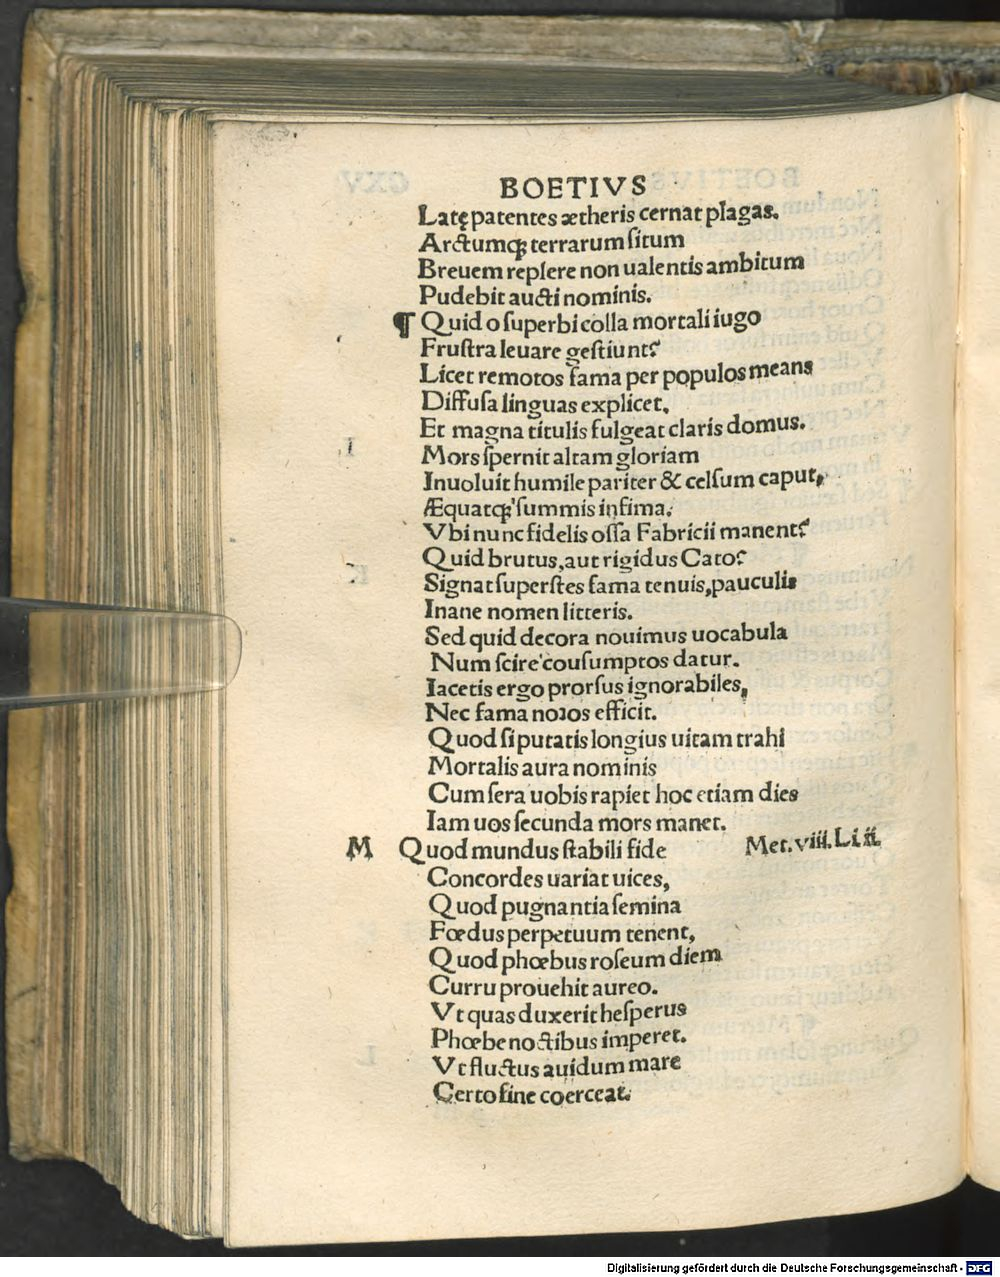 BOETIVS
Latę patentes ætheris cernat plagas.
Arctumqꝫ terrarum ſitum
Breuem replere non ualentis ambitum
Pudebit aucti nominis.
¶ Quid o ſuperbi colla mortali iugo
Fruſtra leuare geſtiunt?
Licet remotos fama per populos means
Diffuſa linguas explicet.
Et magna titulis fulgeat claris domus.
Mors ſpernit altam gloriam
Inuoluit humile pariter & celſum caput,
Æquatqꝫ ſummis infima.
Vbi nunc fidelis oſſa Fabricii manent?
Quid brutus, aut rigidus Cato?
Signat ſuperſtes fama tenuis, pauculis
Inane nomen litteris.
Sed quid decora nouimus uocabula
Num ſcire couſumptos datur.
Iacetis ergo prorſus ignorabiles,
Nec fama noɿos efficit.
Quod ſi putatis longius uitam trahi
Mortalis aura nominis
Cum ſera uobis rapiet hoc etiam dies
Iam uos ſecunda mors manet.
M Quod mundus ſtabili fide Met. viii. L. ii.
Concordes uariat uices,
Quod pugnantia ſemina
Fœdus perpetuum tenent,
Quod phœbus roſeum diem
Curru prouehit aureo.
Vt quas duxerit heſperus
Phœbe noctibus imperet.
Vt fluctus auidum mare
Certo fine coerceat.
Digitalisierung gefördert durch die Deutsche Forschungsgemeinschaft - DFG